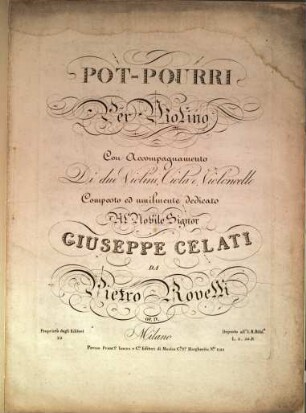 POT-POURRI
Per Violino
Con Accompagnamento
Di due Violini, Viola e Violoncello
Composto ed umilmente dedicato
Al Nobile Signor
GIUSEPPE CELATI
DA
Pietro Rovelli
Milano
Proprietà degli Editori
Deposto all' I. R. Bibl.ª